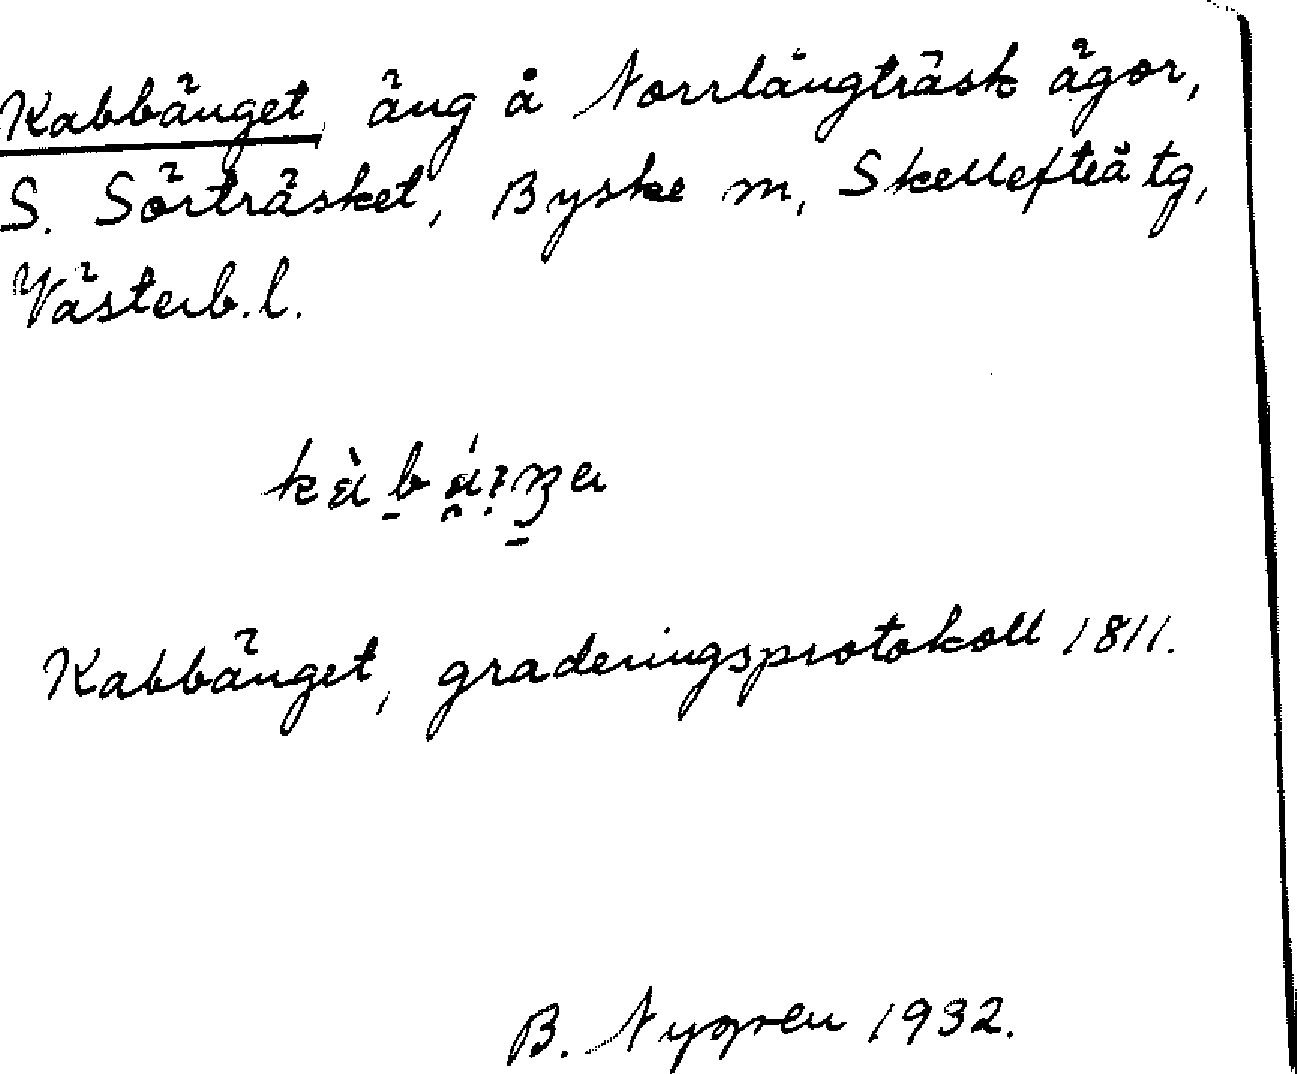 Kabbänget, äng å Norrlångträsk ägor,
S. Sörträsket, Byske m, Skellefteå tg,
Västerb.l.
Kabbänget, graderingsprotokoll 1811.
B. Nygren 1932.